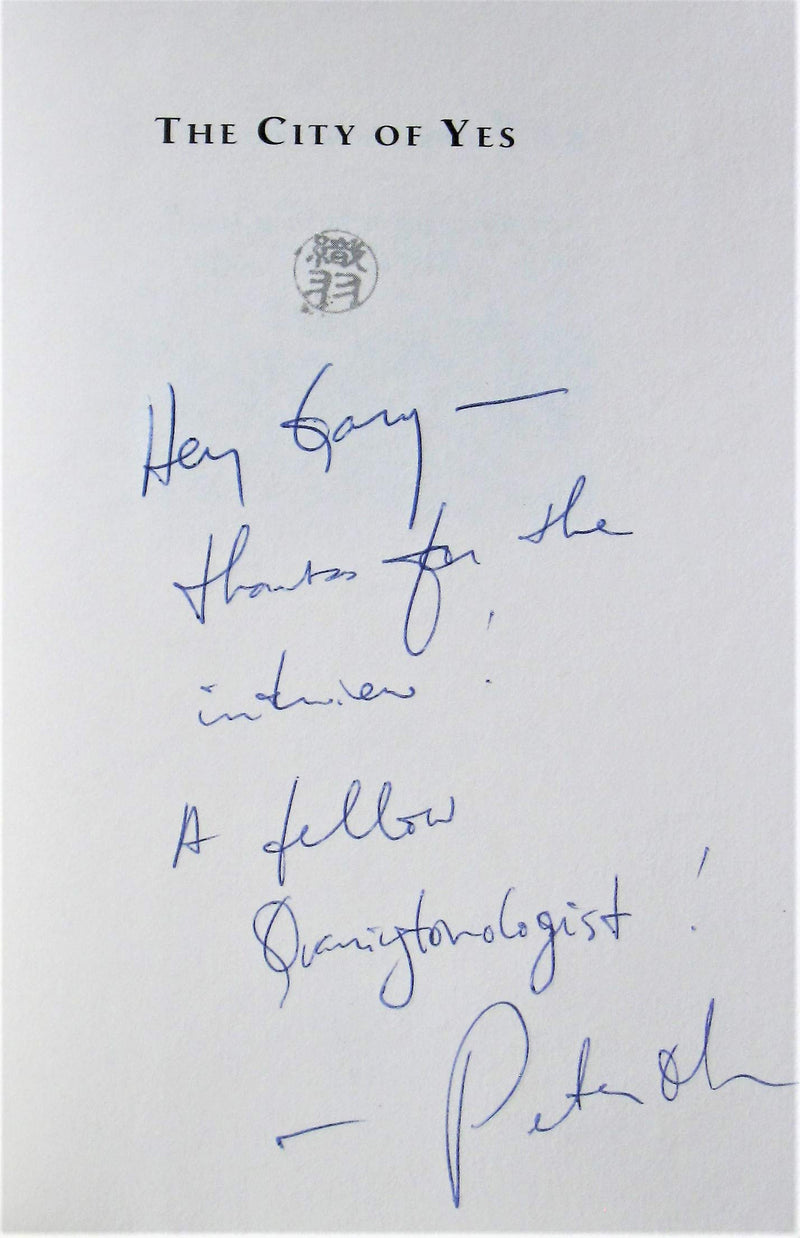 THE CITY OF YES
織羽
Hey Gary —
thanks for the
interview!
A fellow
Qraniytonologist!
— Peter Oh